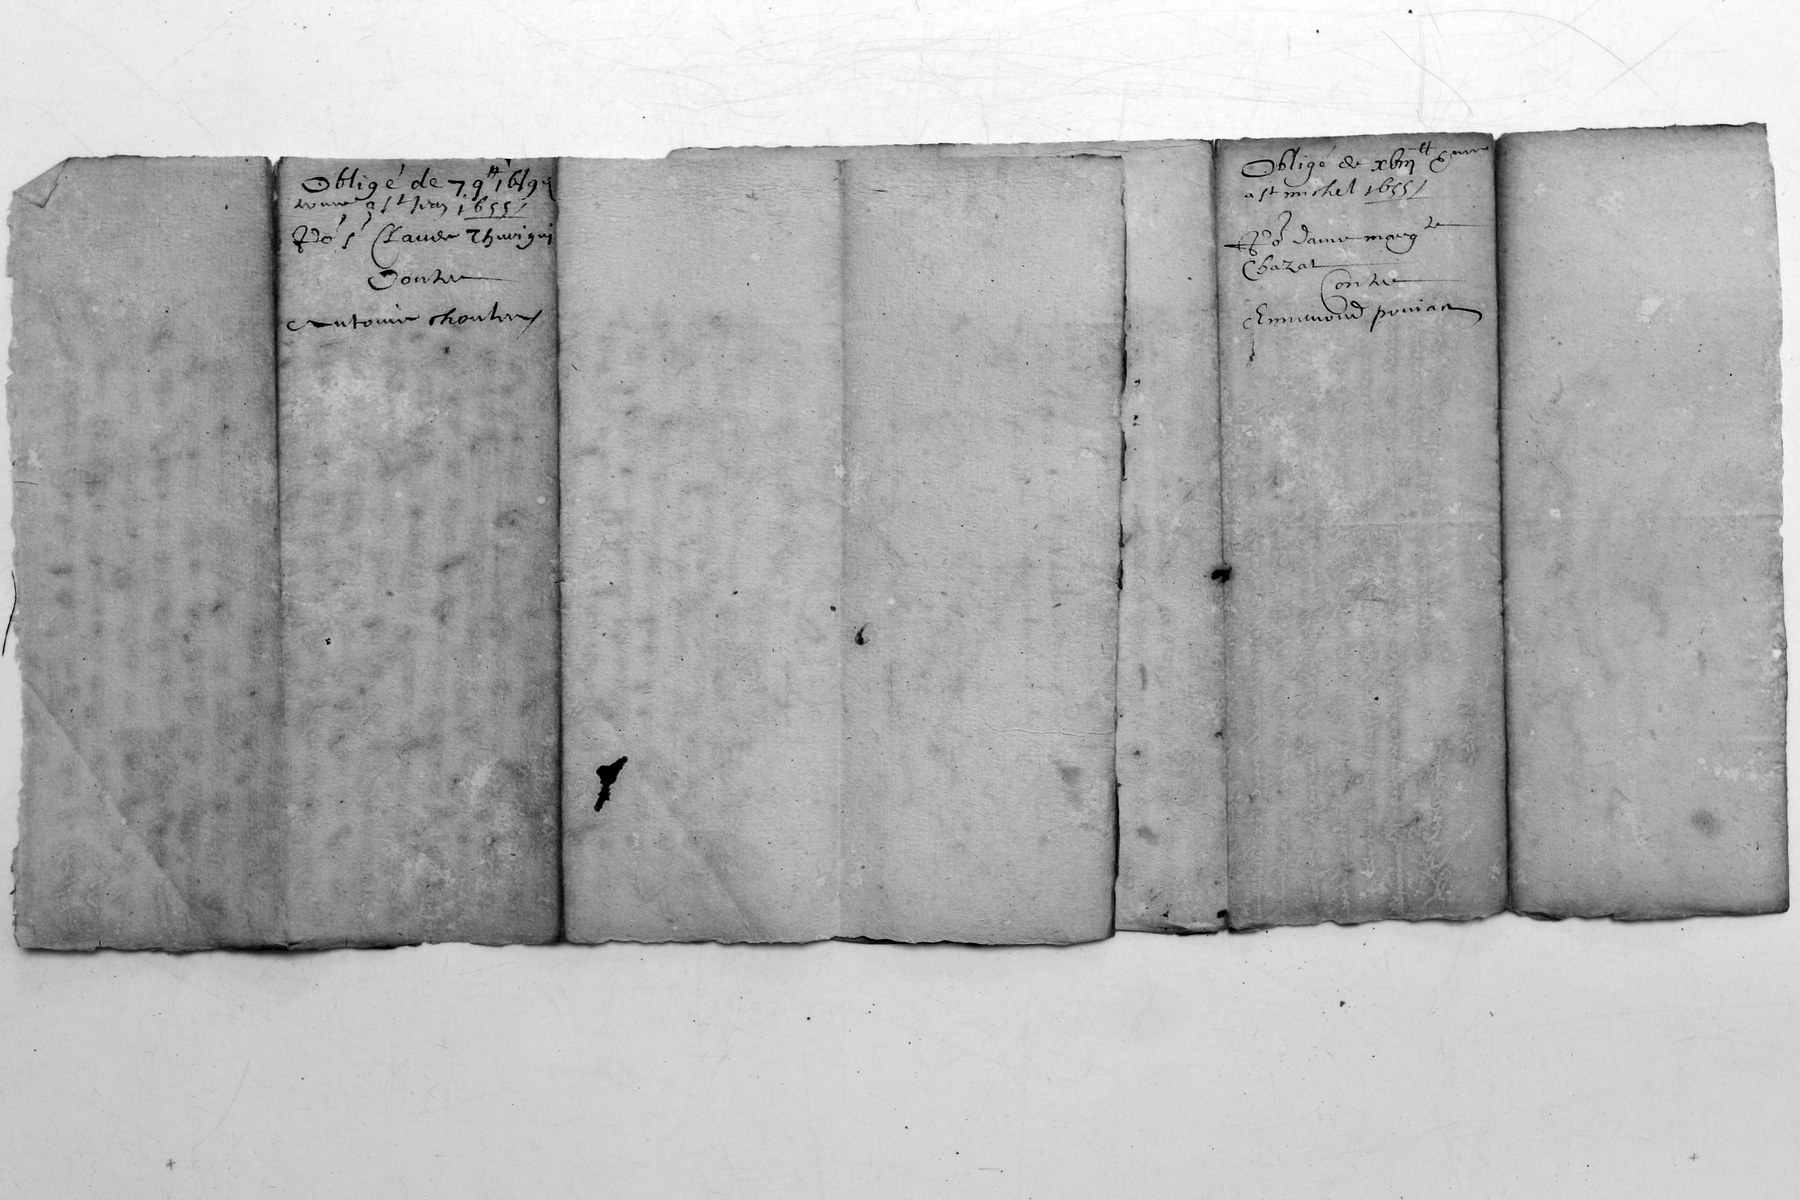 Obligé de 79ᵗᵗ 16ſ 9d
a sᵗ Jean 1655
Po' s' Claude Thevigni
Contre
Antoine choulre
Obligé de xbiijᵗᵗ
a st michel 1655
Po' dame margᵗᵉ
Chazat
Contre
Emmond poniact